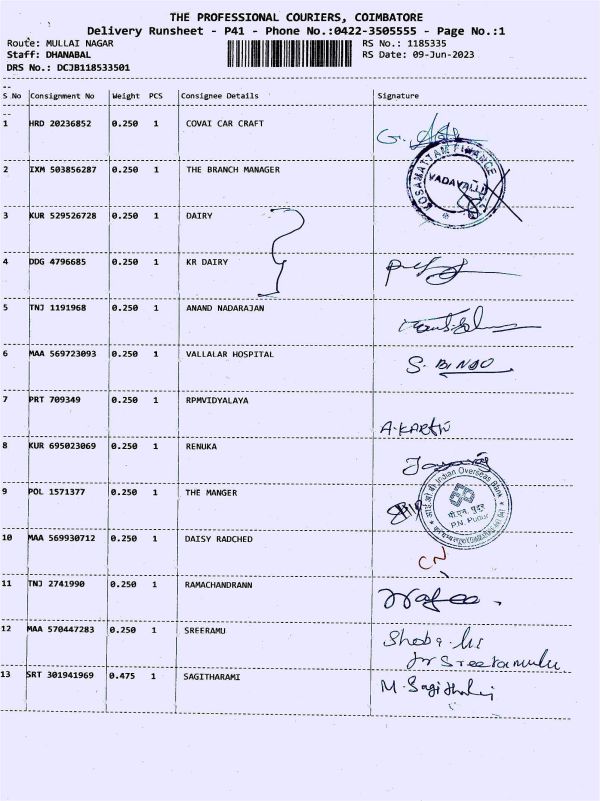 THE PROFESSIONAL COURIERS, COIMBATORE
Delivery Runsheet - P41 - Phone No.:0422-3505555 - Page No.:1
Route: MULLAI NAGAR RS No.: 1185335
Staff: DHANABAL RS Date: 09-Jun-2023
DRS No.: DCJB118533501
S No Consignment No Weight PCS Consignee Details Signature
1 HRD 20236852 0.250 1 COVAI CAR CRAFT
2 IXM 503856287 0.250 1 THE BRANCH MANAGER
KOSAMATTAM FINANCE
VADAVALLI
3 KUR 529526728 0.250 1 DAIRY
4 DDG 4796685 0.250 1 KR DAIRY
5 TNJ 1191968 0.250 1 ANAND NADARAJAN
6 MAA 569723093 0.250 1 VALLALAR HOSPITAL S. BINGO
7 PRT 709349 0.250 1 RPMVIDYALAYA A.KARTHI
8 KUR 695023069 0.250 1 RENUKA
Indian Overseas Bank
9 POL 1571377 0.250 1 THE MANGER
पी.एन. पुदूर
P.N. Pudur
10 MAA 569930712 0.250 1 DAISY RADCHED CN
11 TNJ 2741990 0.250 1 RAMACHANDRANN
12 MAA 570447283 0.250 1 SREERAMU Shoba
for Sreeramulu
13 SRT 301941969 0.475 1 SAGITHARAMI M.Sagithami